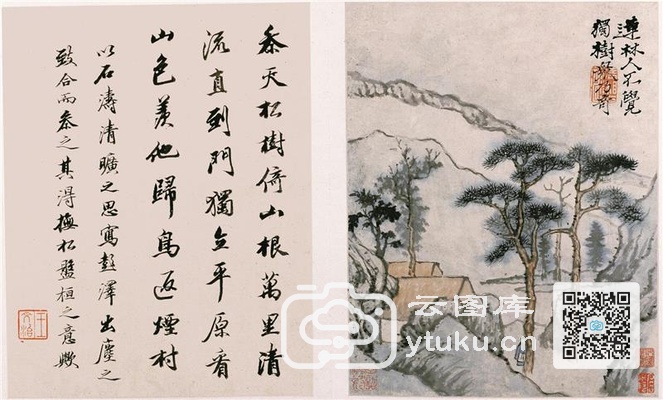 連林人不覺
獨樹眾乃奇
叅天松樹倚山根萬里清
流直到門獨立平原看
山色羨他歸鳥返煙村
以石濤清曠之思寫彭澤出塵之
致合而叅之其得撫松盤桓之意歟
王文治
云图库
ytuku.cn